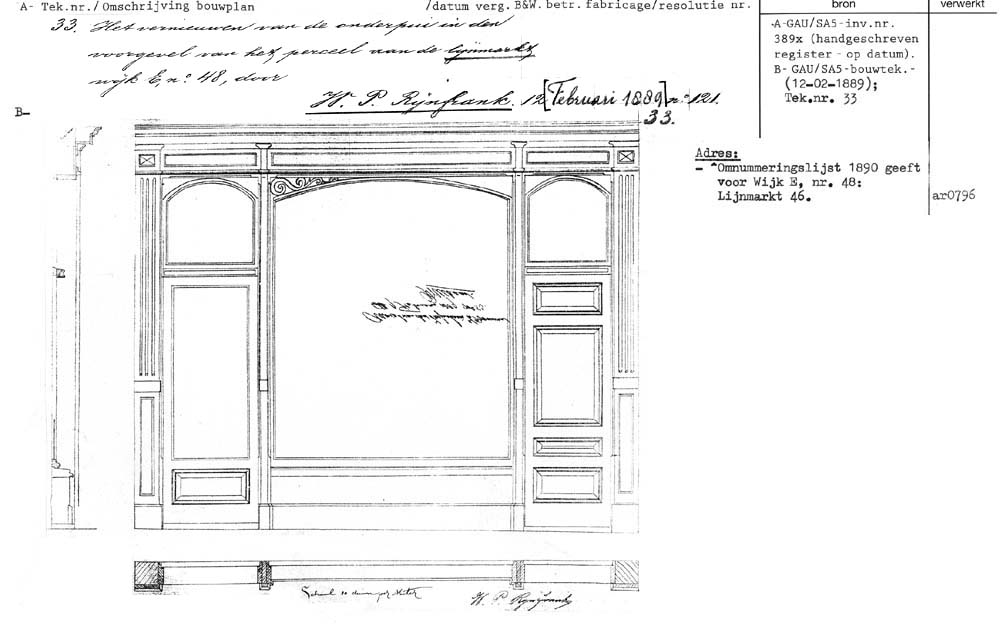 A- Tek.nr./ Omschrijving bouwplan /datum verg. B&W.betr.fabricage/resolutie nr.
bron
verwerkt
33. Het vernieuwen van de onderpui in den
voorgevel van het perceel aan de Lijnmarkt
wijk E, no. 48, door
W. P. Rijnfrank. 12 [Februari 1889] no. 121.
33.
-A-GAU/SA5-inv.nr.
389x (handgeschreven
register - op datum).
B- GAU/SA5-bouwtek.-
(12-02-1889);
Tek.nr. 33
B-
Adres:
- "Omnummeringslijst 1890 geeft
voor Wijk E, nr. 48:
Lijnmarkt 46.
ar0796
W. P. Rijnfrank